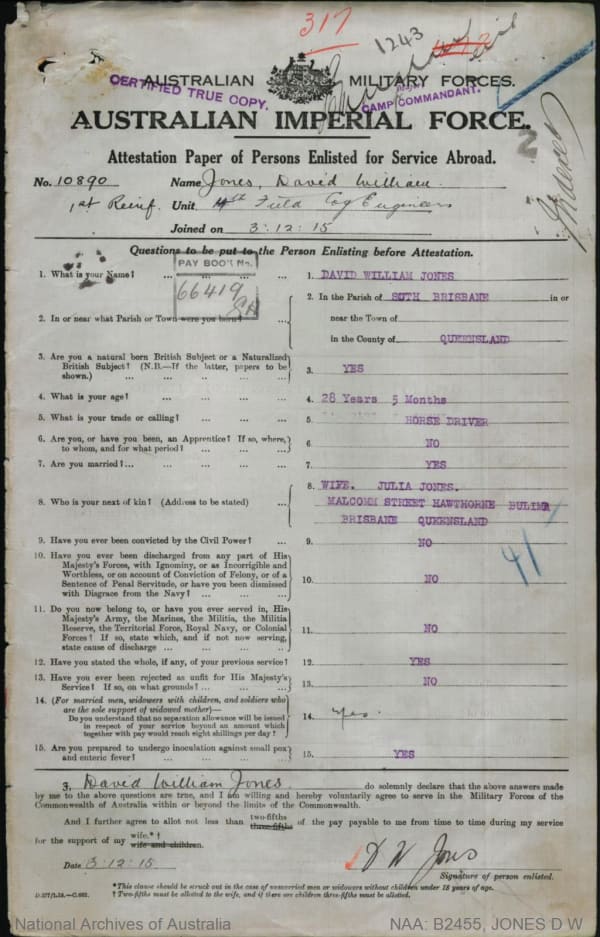 317
1243
AUSTRALIAN MILITARY FORCES.
CERTIFIED TRUE COPY.
CAMP COMMANDANT.
AUSTRALIAN IMPERIAL FORCE.
2
Attestation Paper of Persons Enlisted for Service Abroad.
No. 10890 Name Jones, David William.
1st Reinf. Unit 4th Field Coy Engineers
Joined on 3.12.15
Questions to be put to the Person Enlisting before Attestation.
PAY BOOK No.
66419
1. What is your Name? ... ... ... ...
1. DAVID WILLIAM JONES
2. In or near what Parish or Town were you born? ...
2. In the Parish of SUTH BRISBANE in or
near the Town of
in the County of QUEENSLAND
3. Are you a natural born British Subject or a Naturalized
British Subject? (N.B.—If the latter, papers to be
shown.) ... ... ... ... ...
3. YES
4. What is your age? ... ... ... ...
4. 28 Years 5 Months
5. What is your trade or calling? ... ... ...
5. HORSE DRIVER
6. Are you, or have you been, an Apprentice? If so, where,
to whom, and for what period? ... ... ...
6. NO
7. Are you married?... ... ... ... ...
7. YES
8. Who is your next of kin? (Address to be stated) ...
8. WIFE. JULIA JONES.
MALCOMM STREET HAWTHORNE BULIMA
BRISBANE QUEENSLAND
9. Have you ever been convicted by the Civil Power? ...
9. NO
41
10. Have you ever been discharged from any part of His
Majesty's Forces, with Ignominy, or as Incorrigible and
Worthless, or on account of Conviction of Felony, or of a
Sentence of Penal Servitude, or have you been dismissed
with Disgrace from the Navy? ... ... ...
10. NO
11. Do you now belong to, or have you ever served in, His
Majesty's Army, the Marines, the Militia, the Militia
Reserve, the Territorial Force, Royal Navy, or Colonial
Forces? If so, state which, and if not now serving,
state cause of discharge ... ... ... ...
11. NO
12. Have you stated the whole, if any, of your previous service?
12. YES
13. Have you ever been rejected as unfit for His Majesty's
Service? If so, on what grounds? ... ... ...
13. NO
14. (For married men, widowers with children, and soldiers who
are the sole support of widowed mother)—
Do you understand that no separation allowance will be issued
in respect of your service beyond an amount which
together with pay would reach eight shillings per day?
14. yes.
15. Are you prepared to undergo inoculation against small pox
and enteric fever? ... ... ... ...
15. YES
I, David William Jones. do solemnly declare that the above answers made
by me to the above questions are true, and I am willing and hereby voluntarily agree to serve in the Military Forces of the
Commonwealth of Australia within or beyond the limits of the Commonwealth.
And I further agree to allot not less than two-fifths three-fifths of the pay payable to me from time to time during my service
for the support of my wife.*† wife and children.
Date 3.12.15
D W Jones
Signature of person enlisted.
*This clause should be struck out in the case of unmarried men or widowers without children under 18 years of age.
† Two-fifths must be allotted to the wife, and if there are children three-fifths must be allotted.
National Archives of Australia
NAA: B2455, JONES D W